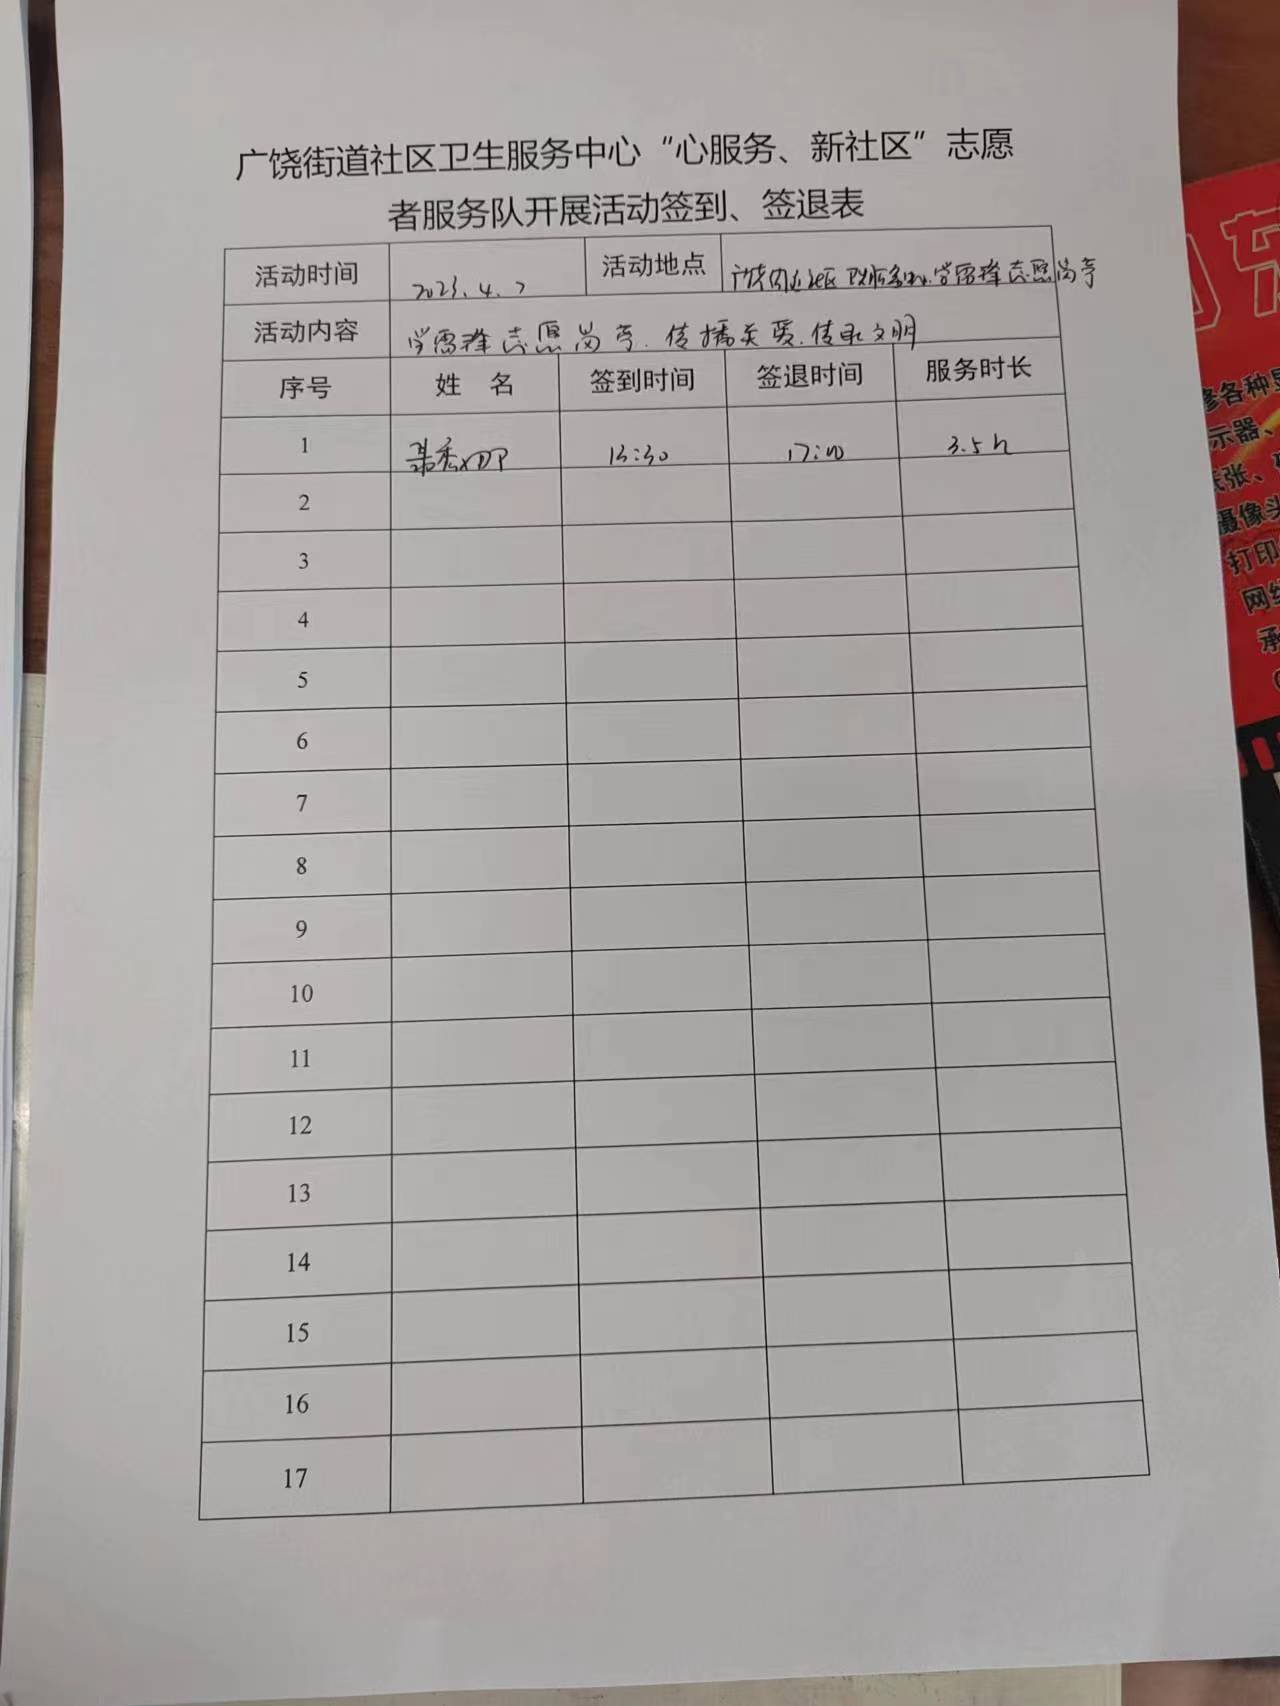 广饶街道社区卫生服务中心“心服务、新社区”志愿
者服务队开展活动签到、签退表
活动时间 2023.4.2 活动地点 广饶街道社区卫生服务中心学雷锋志愿岗亭
活动内容 学雷锋志愿岗亭.传播关爱.传承文明
序号 姓 名 签到时间 签退时间 服务时长
1 13:30 17:00 3.5h
2
3
4
5
6
7
8
9
10
11
12
13
14
15
16
17
修各种显
示器、
纸张、硒
摄像头
打印
网络
承